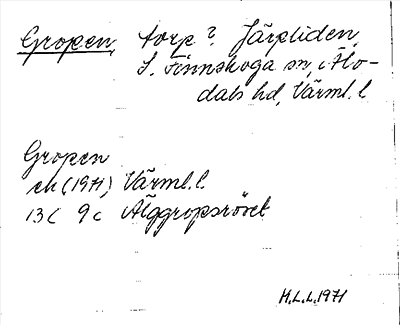 Gropen, torp? Järpliden,
S. Finnskoga sn, i Älv-
dals hd, Värml. l.
Gropen
ek (1971) Värml. l.
13C 9c Älggropsröset
H.L.L. 1971